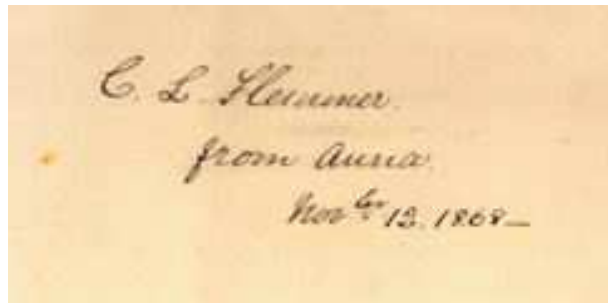 C. L. Slemmer.
from Anna.
Nov^ber 12. 1868—